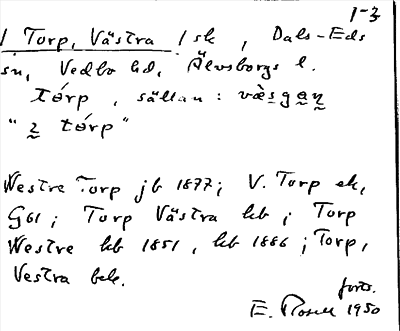 1-3
/ Torp, Västra / sk, Dals-Eds
sn, Vedbo hd, Älvsborgs l.
tórp, sällan: væ̀sgaṇ
"ḷ tórp"
Westre Torp jb 1877; V. Torp ek,
G61; Torp Västra kb; Torp
Westre kb 1851, kb 1886; Torp,
Vestra bek.
forts.
E. Rosell 1950